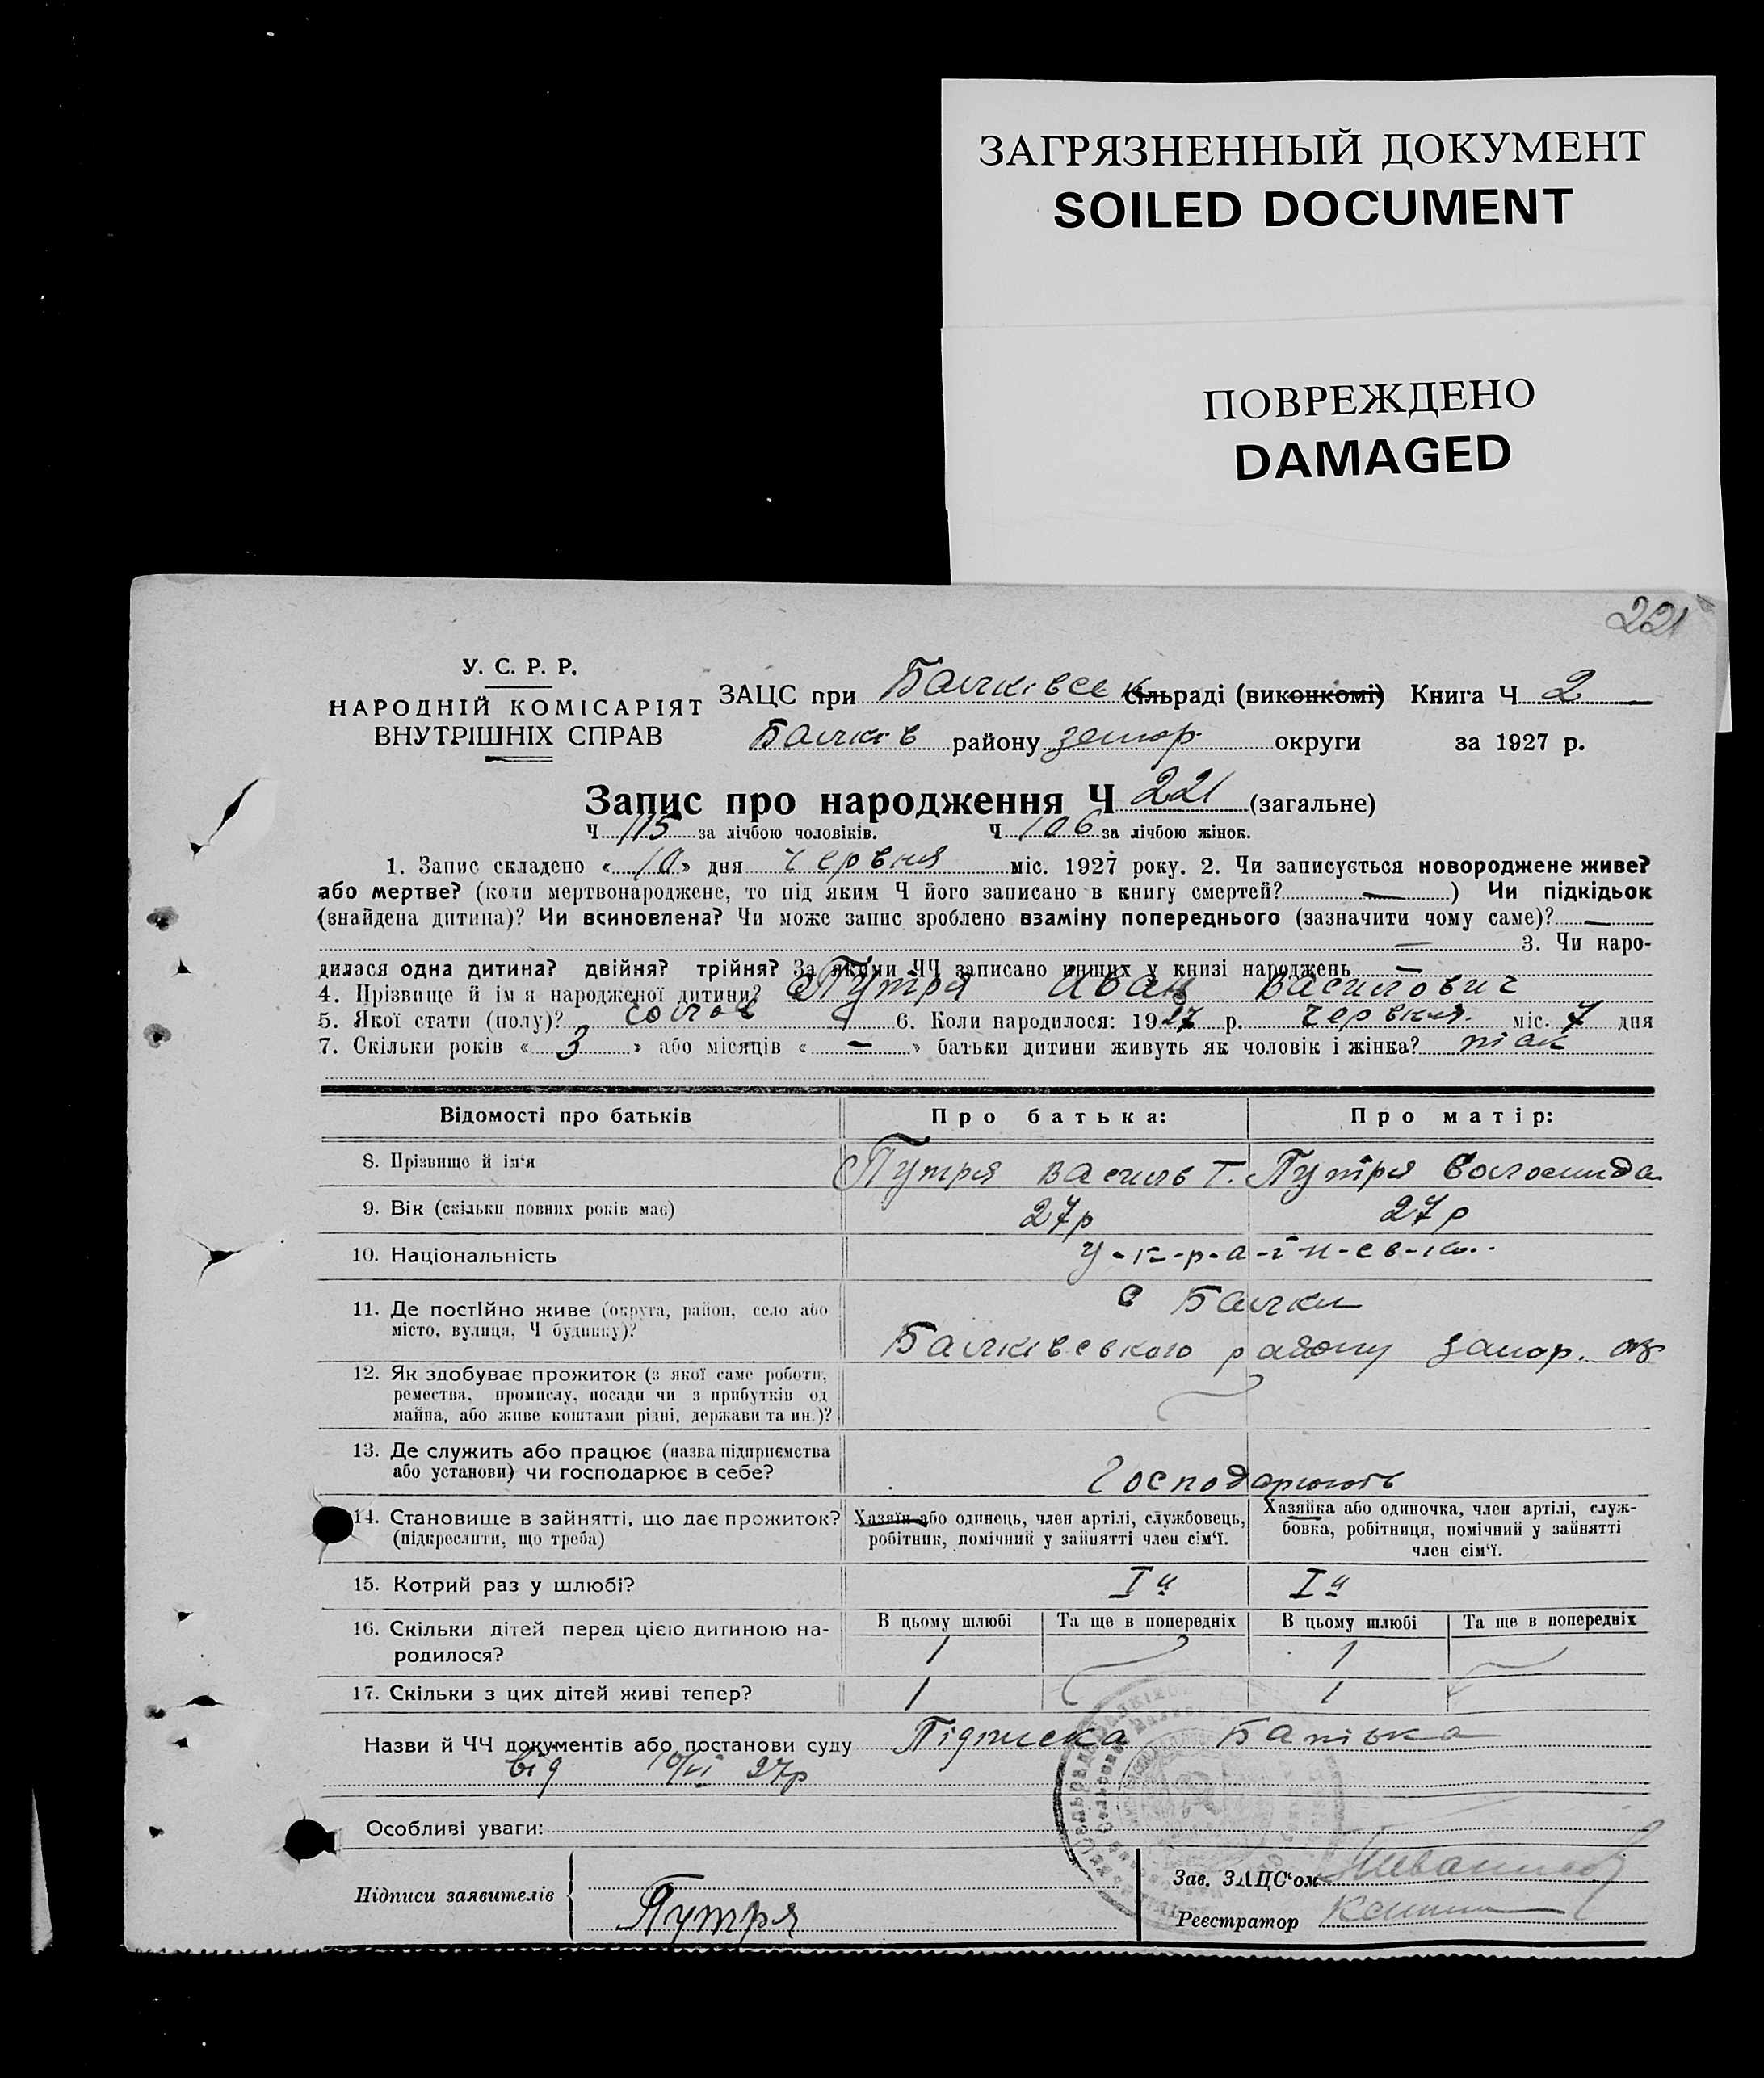 ЗАГРЯЗНЕННЫЙ ДОКУМЕНТ
SOILED DOCUMENT
ПОВРЕЖДЕНО
DAMAGED
221
У. С. Р. Р.
НАРОДНІЙ КОМІСАРІЯТ
ВНУТРІШНІХ СПРАВ
ЗАЦС при Балківськ сільраді (виконкомі) Книга Ч 2
Балків району запор. округи за 1927 р.
Запис про народження Ч 221 (загальне)
Ч 115 за лічбою чоловіків. Ч 106 за лічбою жінок.
1. Запис складено « 10 » дня червня міс. 1927 року. 2. Чи записується новороджене живе?
або мертве? (коли мертвонароджене, то під яким Ч його записано в книгу смертей? — ) Чи підкідьок
(знайдена дитина)? Чи всиновлена? Чи може запис зроблено взаміну попереднього (зазначити чому саме)? —
— 3. Чи наро-
дилася одна дитина? двійня? трійня? За якими ЧЧ записано инших у книзі народжень —
4. Прізвище й ім я народженої дитини? Путря Иван Василович
5. Якої стати (полу)? 6. Коли народилося: 1927 р. червня. міс. 7 дня
7. Скільки років « 3 » або місяців « — » батьки дитини живуть як чоловік і жінка? так
Відомості про батьків Про батька: Про матір:
8. Прізвище й ім‘я Путря Василь Т. Путря
9. Вік (скільки повних років має) 27р 27р
10. Національність у-к-р-а-ї-н-с-в-к..
11. Де постійно живе (округа, район, село або
місто, вулиця, Ч будинку)?
с Балки
Балківського району запор. ок
12. Як здобуває прожиток (з якої саме роботи,
ремества, промислу, посади чи з прибутків од
майна, або живе коштами рідні, держави та ин.)?
13. Де служить або працює (назва підприємства
або установи) чи господарює в себе?
Господарюють
14. Становище в зайнятті, що дає прожиток?
(підкреслити, що треба)
Хазяїн або одинець, член артілі, службовець,
робітник, помічний у зайнятті член сім‘ї.
Хазяйка або одиночка, член артілі, служ-
бовка, робітниця, помічний у зайнятті
член сім‘ї.
15. Котрий раз у шлюбі? Iй Iй
16. Скільки дітей перед цією дитиною на-
родилося?
В цьому шлюбі Та ще в попередніх В цьому шлюбі Та ще в попередніх
1 1
17. Скільки з цих дітей живі тепер? 1 1
Назви й ЧЧ документів або постанови суду Підписка Батька
від 10/VI 27р
Особливі уваги:
Підписи заявителів Путря
Зав. ЗАЦС‘ом
Реєстратор